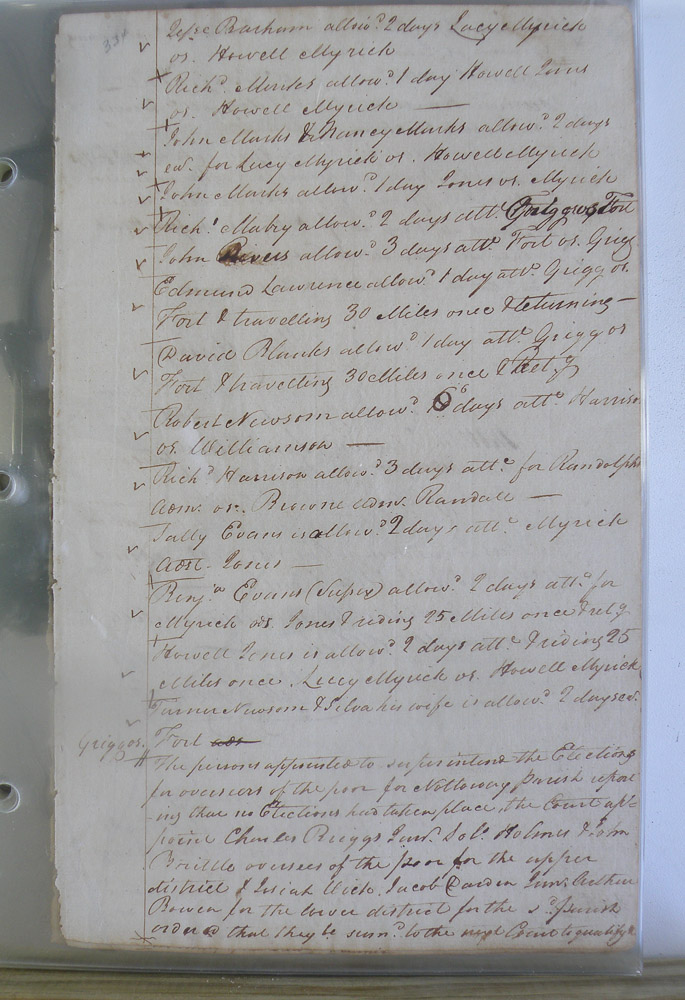 334
Jesse Barham allow.d 2 days Lucy Myrick
vs. Howell Myrick
Rich.d Marks allow.d 1 day Howell Jones
vs. Howell Myrick —
John Marks & Nancy Marks allow.d 2 days
ea. for Lucy Myrick vs. Howell Myrick
John Marks allow.d 1 day Jones vs. Myrick
Rich.d Mabry allow.d 2 days att.e Grigg vs Fort
John Rivers allow.d 3 days att.e Fort vs. Grigg
Edmund Lawrence allow.d 1 day att.e Grigg vs.
Fort & travelling 30 Miles once & returning —
David Blanks allow.d 1 day att.e Grigg vs
Fort & travelling 30 Miles once & Ret.g
Robert Newsom allow.d 6 days att.e Harrison
vs. Williamson —
Rich.d Harrison allow.d 3 days att.e for Randolph
adm. vs. Browne adm. Randall —
Sally Evans is allow.d 2 days att.e Myrick
ads. Jones —
Benj.a Evans (Sussex) allow.d 2 days att.e for
Myrick ads. Jones & riding 25 Miles once & ret.g
Howell Jones is allow.d 2 days att.e & riding 25
Miles once. Lucy Myrick vs. Howell Myrick
Turner Newsom & Silva his wife is allow.d 2 days ea.
Grigg vs. Fort ads
The persons appointed to superintend the Elections
for overseers of the poor for Nottoway Parish report-
ing that no Elections had taken place, the Court ap-
point Charles Briggs Jun.r Sol.o Holmes & John
Brittle overseers of the poor for the upper
district & Josiah Vick, Jacob Darden Jun.r Arthur
Bowen for the lower district for the s.d parish
ordered that they be sum.d to the next Court to qualify &